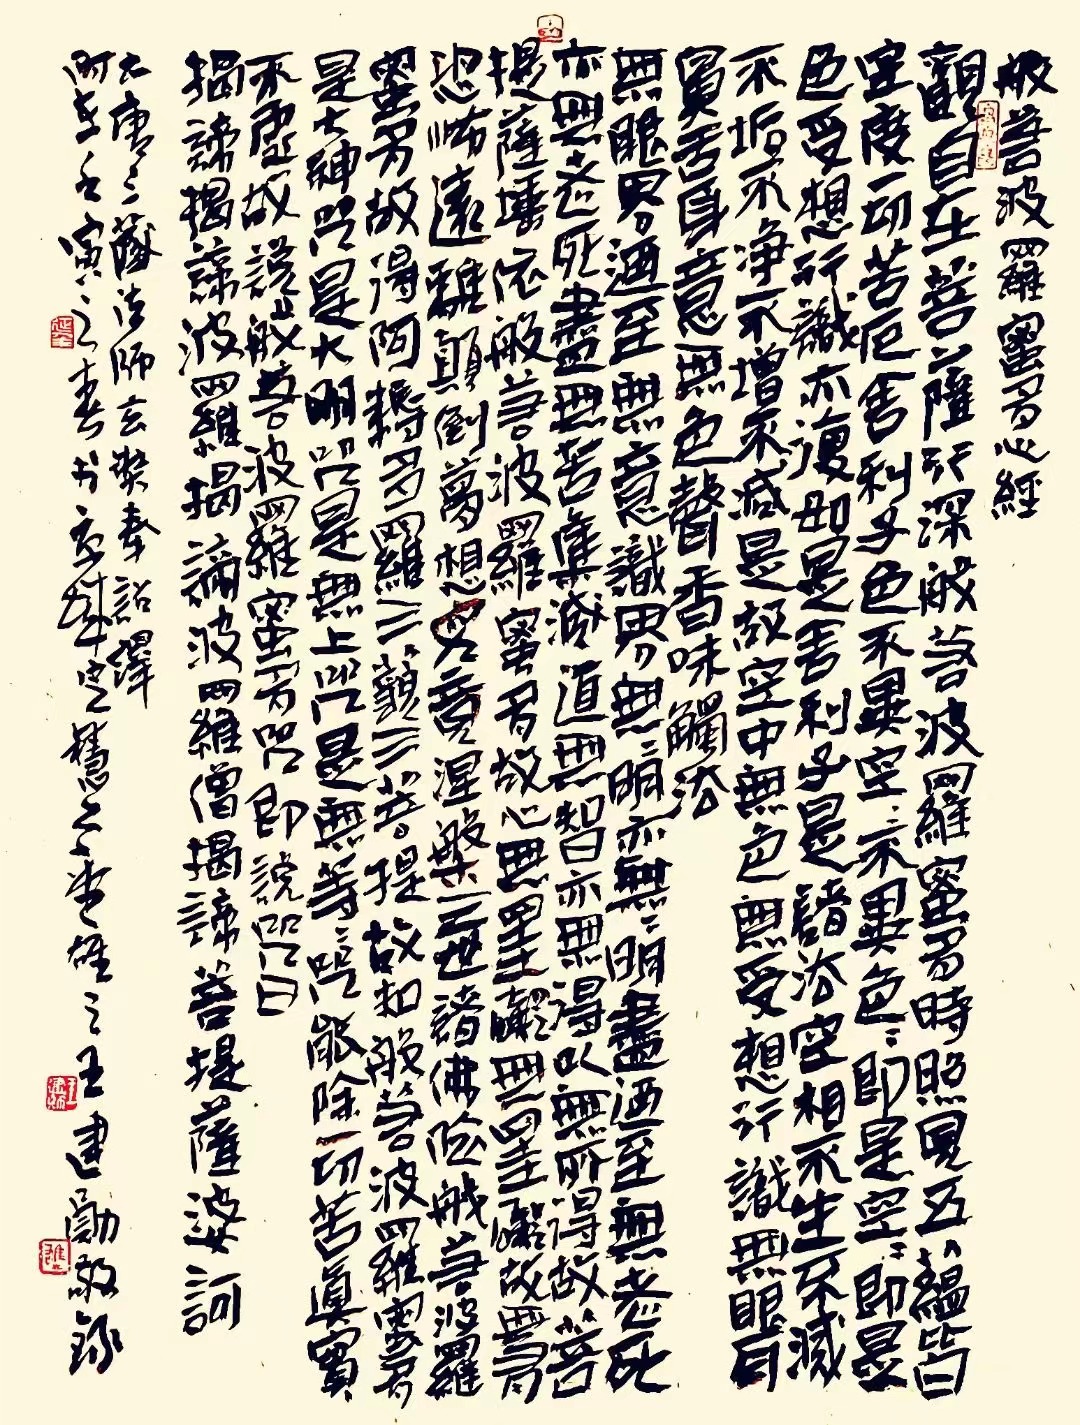 般若波羅蜜多心經
觀自在菩薩行深般若波羅蜜多時照見五蘊皆
空度一切苦厄舍利子色不異空〻不異色〻即是空〻即是
色受想行識亦復如是舍利子是諸法空相不生不滅
不垢不净不增不减是故空中無色無受想行識無眼耳
鼻舌身意無色聲香味觸法
無眼界迺至無意識界無〻明亦無〻明盡迺至無老死
亦無老死盡無苦集滅道無智亦無得以無所得故菩
提薩埵依般若波羅蜜多故心無罣礙無罣礙故無有
恐怖遠離顛倒夢想究竟涅槃三世諸佛依般若波羅
蜜多故得阿耨多羅三藐三菩提故知般若波羅蜜多
是大神咒是大明咒是無上咒是無等〻咒能除一切苦真實
不虛故說般若波羅蜜多咒即說咒曰
揭諦揭諦波羅揭諦波羅僧揭諦菩提薩婆訶
大唐三藏法師玄奘奉詔譯
时在壬寅之春书京華定慧之堂雄之王建勛敬録